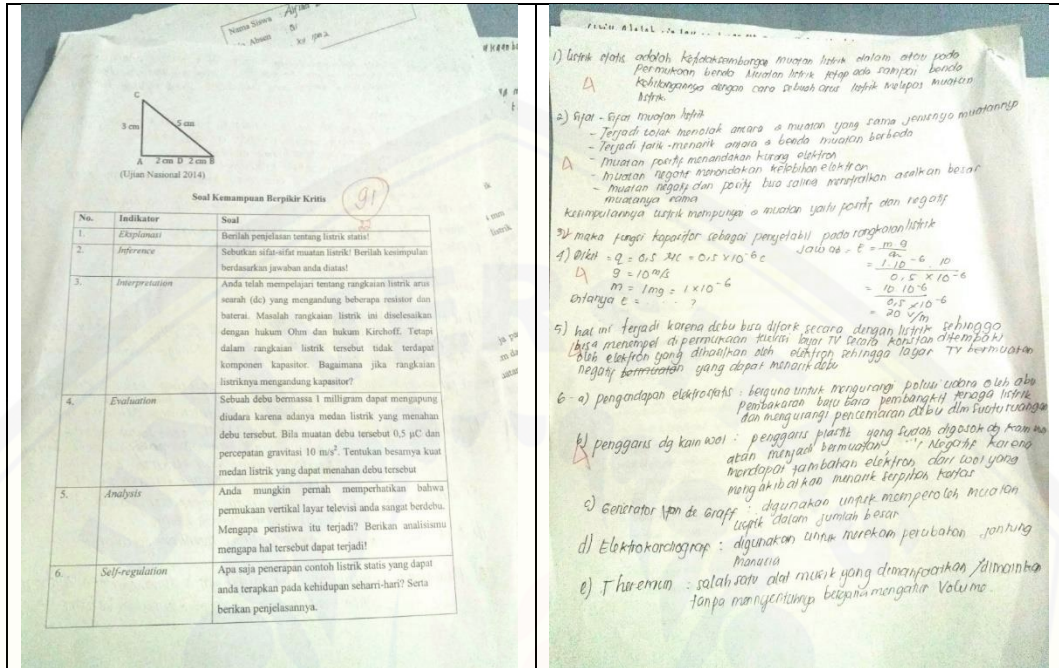 Nama Siswa
Absen
C
3 cm
5 cm
A 2 cm D 2 cm B
(Ujian Nasional 2014)
91
Soal Kemampuan Berpikir Kritis
No. Indikator Soal
1. Eksplanasi Berilah penjelasan tentang listrik statis!
2. Inference Sebutkan sifat-sifat muatan listrik! Berilah kesimpulan
berdasarkan jawaban anda diatas!
3. Interpretation Anda telah mempelajari tentang rangkaian listrik arus
searah (dc) yang mengandung beberapa resistor dan
baterai. Masalah rangkaian listrik ini diselesaikan
dengan hukum Ohm dan hukum Kirchoff. Tetapi
dalam rangkaian listrik tersebut tidak terdapat
komponen kapasitor. Bagaimana jika rangkaian
listriknya mengandung kapasitor?
4. Evaluation Sebuah debu bermassa 1 milligram dapat mengapung
diudara karena adanya medan listrik yang menahan
debu tersebut. Bila muatan debu tersebut 0,5 μC dan
percepatan gravitasi 10 m/s². Tentukan besarnya kuat
medan listrik yang dapat menahan debu tersebut
5. Analysis Anda mungkin pernah memperhatikan bahwa
permukaan vertikal layar televisi anda sangat berdebu.
Mengapa peristiwa itu terjadi? Berikan analisismu
mengapa hal tersebut dapat terjadi!
6. Self-regulation Apa saja penerapan contoh listrik statis yang dapat
anda terapkan pada kehidupan seharri-hari? Serta
berikan penjelasannya.
1) listrik statis adalah ketidakseimbangan muatan listrik dalam atau pada
permukaan benda Muatan listrik tetap ada sampai benda
kehilangannya dengan cara sebuah arus listrik melepas muatan
listrik.
2) Sifat - Sifat muatan listrik
- Terjadi tolak menolak antara 2 muatan yang sama jenisnya muatannya
- Terjadi tarik-menarik antara 2 benda muatan berbeda
- muatan positif menandakan kurang elektron
- Muatan negatif menandakan kelebihan elektron
- muatan negatif dan positif bisa saling menetralkan asalkan besar
muatanya sama
kesimpulannya listrik mempunyai 2 muatan yaitu positif dan negatif
3) maka fungsi kapasitor sebagai penyetabil pada rangkaian listrik
4) Diket = q = 0,5 μC = 0,5 × 10⁻⁶ c
g = 10 m/s
m = 1 mg = 1 × 10⁻⁶
Ditanya E = . . . ?
Jawab = E = m.g
= 1.10⁻⁶ . 10
0,5 × 10⁻⁶
= 10.10⁻⁶
0,5 × 10⁻⁶
= 20 V/m
5) hal ini terjadi karena debu bisa ditarik secara dengan listrik sehingga
bisa menempel di permukaan televisi layar TV secara konstan ditembaki
oleh elektron yang dihasilkan oleh elektron sehingga layar TV bermuatan
negatif bermuatan yang dapat menarik debu
6 - a) pengendapan elektrostatis : berguna untuk mengurangi polusi udara oleh abu
pembakaran batu bara pembangkit tenaga listrik
dan mengurangi pencemaran debu dlm suatu ruangan
b) penggaris dg kain wol : penggaris plastik yang sudah digosok dg kain wol
akan menjadi bermuatan Negatif karena
mendapat tambahan elektron dari wol yang
mengakibatkan menarik serpihan kertas
c) Generator Van de Graff : digunakan untuk memperoleh muatan
listrik dalam jumlah besar
d) Elektrokardiograf : digunakan untuk merekam perubahan jantung
manusia
e) Theremin : salah satu alat musik yang dimanfaatkan / dimainkan
tanpa menyentuhnya mengatur Volume